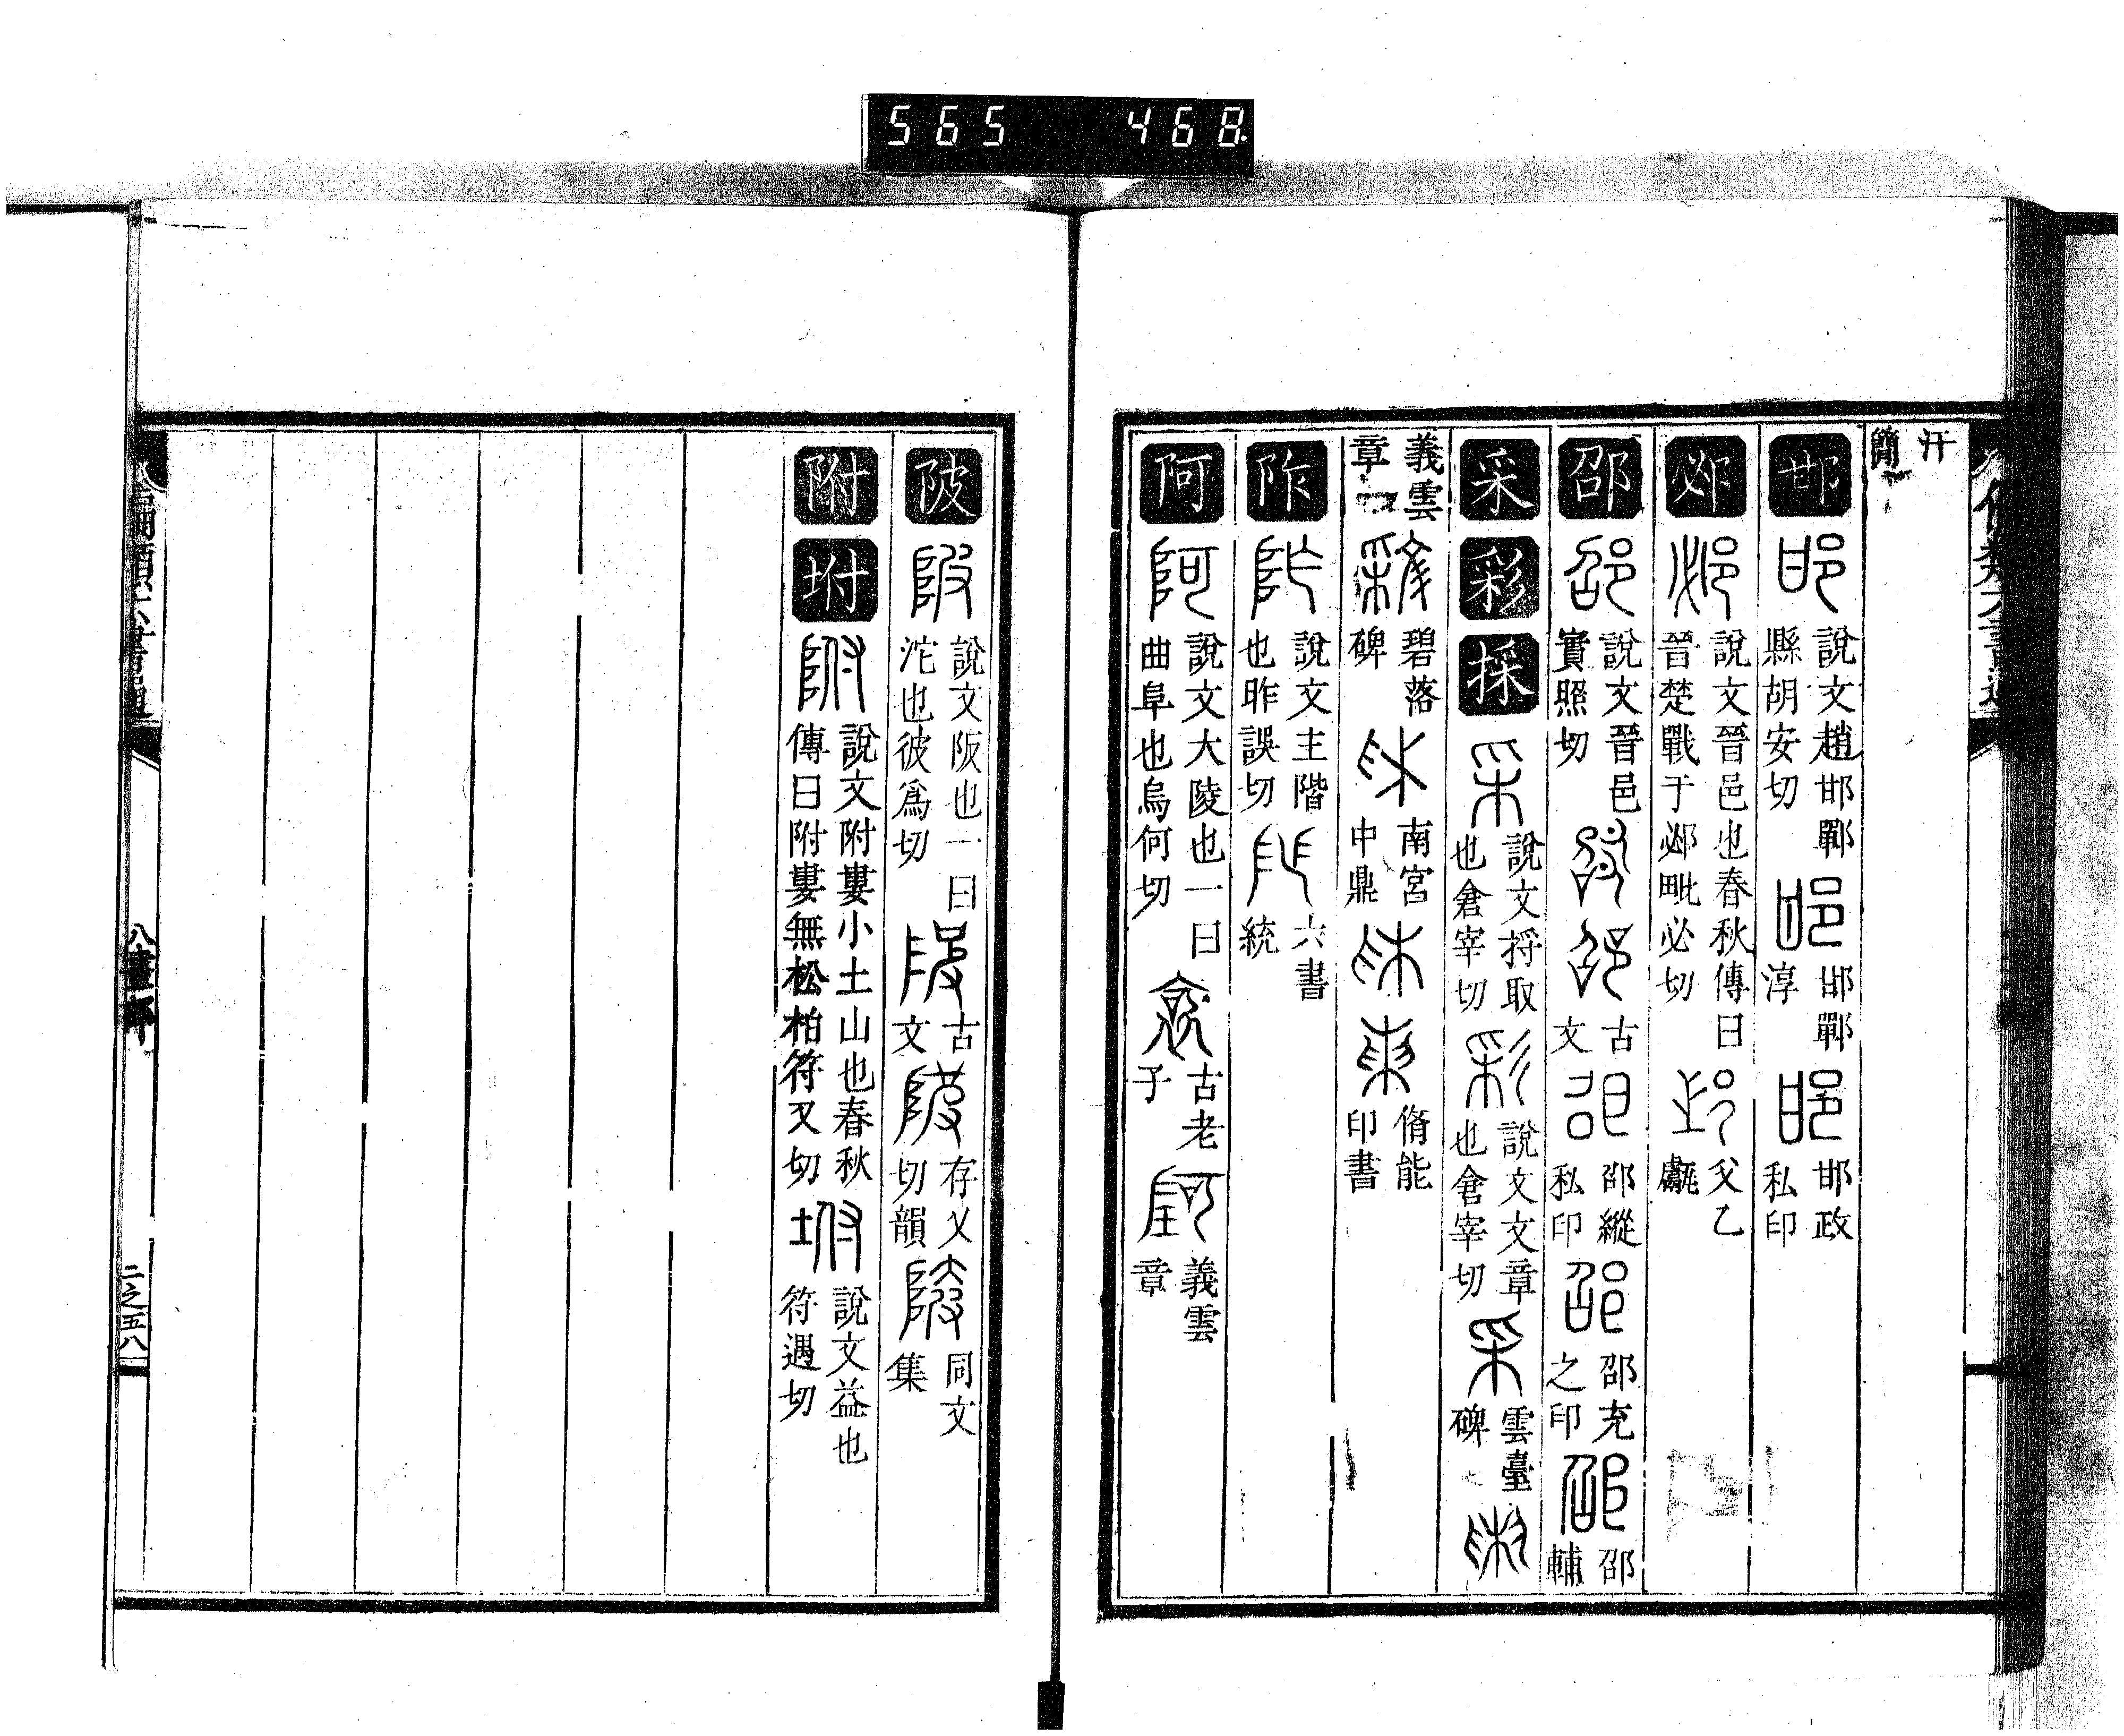 565 468
汗簡
邯 說文趙邯鄲縣胡安切 邯鄲淳 邯政私印
邲 說文晉邑也春秋傳曰晉楚戰于邲毗必切 父乙甗
邵 說文晉邑實照切 古文 邵縱私印 邵充之印 邵輔
采 彩 採 說文捋取也倉宰切 說文文章也倉宰切 雲臺碑
義雲章 碧落碑 南宮中鼎 脩能印書
阼 說文主階也昨誤切 六書統
阿 說文大陵也一曰曲阜也烏何切 古老子 義雲章
陂 說文阪也一曰沱也彼爲切 古文 存乂切韻 同文集
附 坿 說文附婁小土山也春秋傳曰附婁無松柏符又切 說文益也符遇切
二之五八